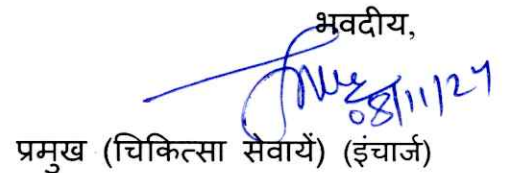 भवदीय,
08/11/24
प्रमुख (चिकित्सा सेवायें) (इंचार्ज)